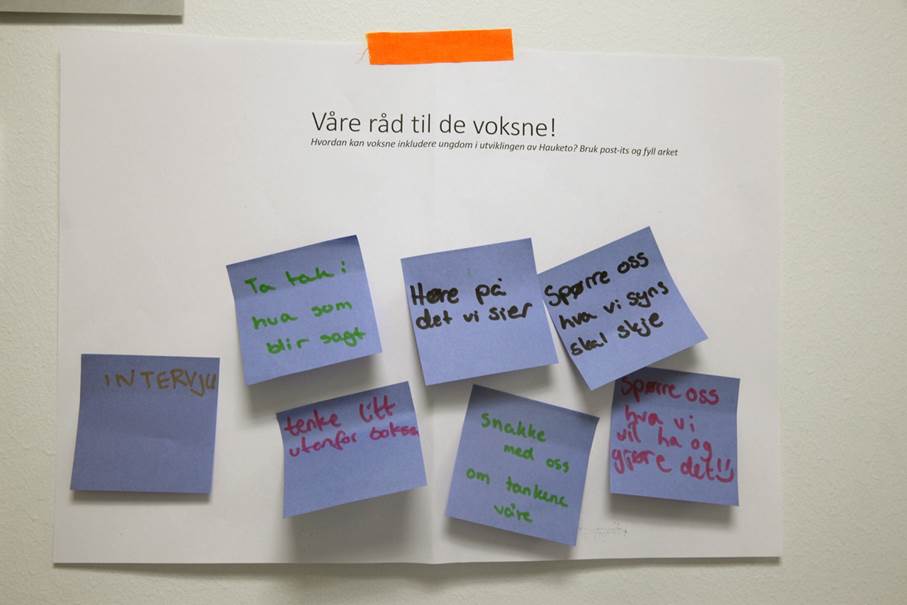 Våre råd til de voksne!
Hvordan kan voksne inkludere ungdom i utviklingen av Hauketo? Bruk post-its og fyll arket
Ta tak i
hva som
blir sagt
Høre på
det vi sier
Spørre oss
hva vi syns
skal skje
INTERVJU
tenke litt
utenfor boksen
snakke
med oss
om tankene
våre
Spørre oss
hva vi
vil ha og
gjøre det!